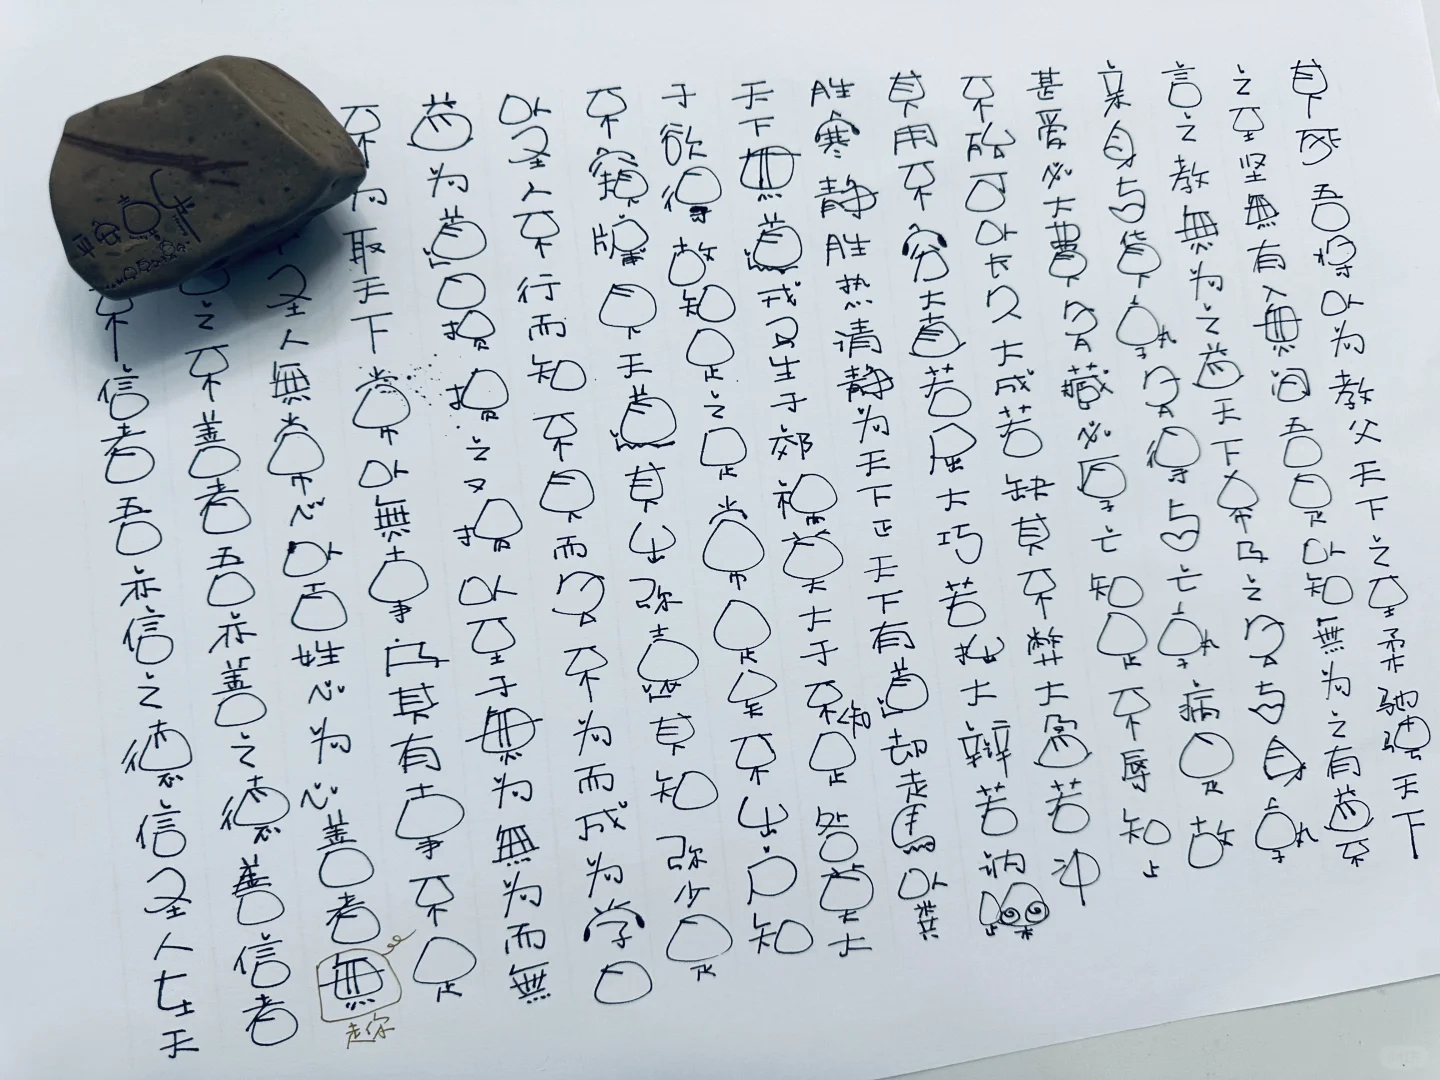 其死吾将以为教父天下之至柔驰骋天下
之至坚無有入無间吾是以知無为之有益不
言之教無为之益天下希及之名与身孰
亲身与货孰多得与亡孰病是故
甚爱必大费多藏必厚亡知足不辱知止
不殆可以长久大成若缺其不弊大盈若冲
其用不穷大直若屈大巧若拙大辩若讷躁
胜寒静胜热清静为天下正天下有道却走马以粪
天下無道戎马生于郊祸莫大于不知足咎莫大
于欲得故知足之足常足矣不出户知
不窥牖见天道其出弥远其知弥少是
以圣人不行而知不见而名不为而成为学日
益为道日损损之又损以至于無为無为而無
不为取天下常以無事及其有事不足
圣人無常心以百姓心为心善者無
走你
之不善者吾亦善之德善信者
不信者吾亦信之德信圣人在天